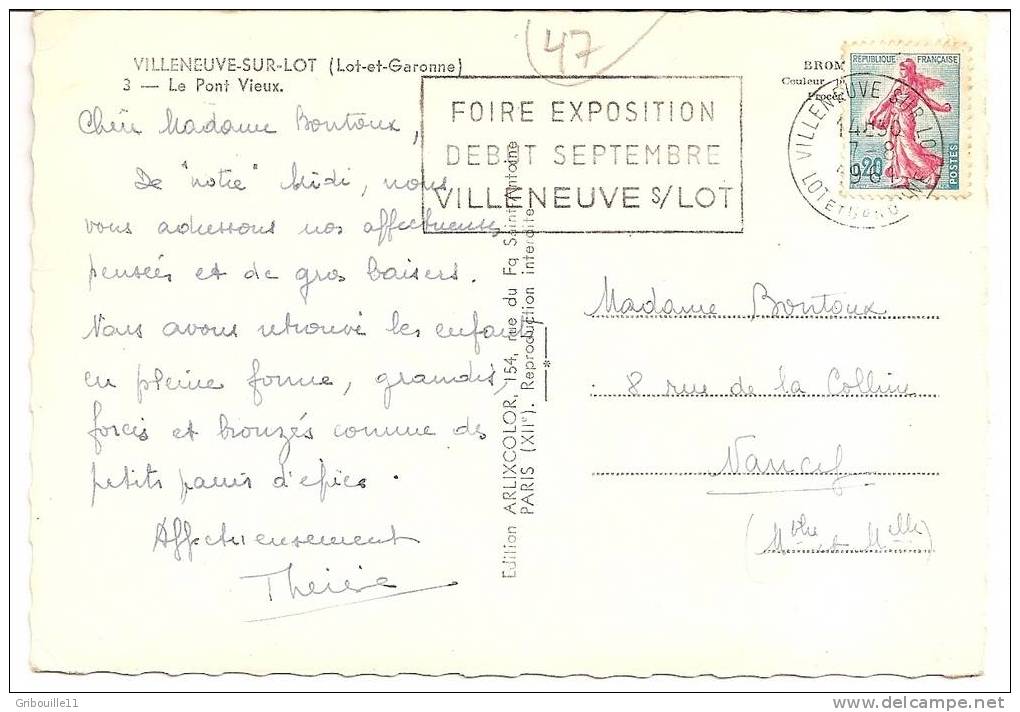 (47
VILLENEUVE-SUR-LOT (Lot-et-Garonne)
3 — Le Pont Vieux.
BROM
Couleur
Procéd
FOIRE EXPOSITION
DEBUT SEPTEMBRE
VILLENEUVE S/LOT
VILLENEUVE SUR LOT
14H30
7 - 8
LOT ET GARONNE
REPUBLIQUE FRANÇAISE
0,20
POSTES
Chère Madame Bontoux,
De "notre" Midi, nous
vous adressons nos affectueuses
pensées et de gros baisers.
Nous avons retrouvé les enfants
en pleine forme, grandis,
forcis et bronzés comme des
petits pains d'épices.
Affectueusement
Thérèse
Edition ARLIXCOLOR, 154, rue du Fg Saint-Antoine
PARIS (XIIe). Reproduction interdite
—*—
Madame Bontoux
8 rue de la Colline
Nancy
(Mthe et Mlle)
Gribouille11
delcampe.net